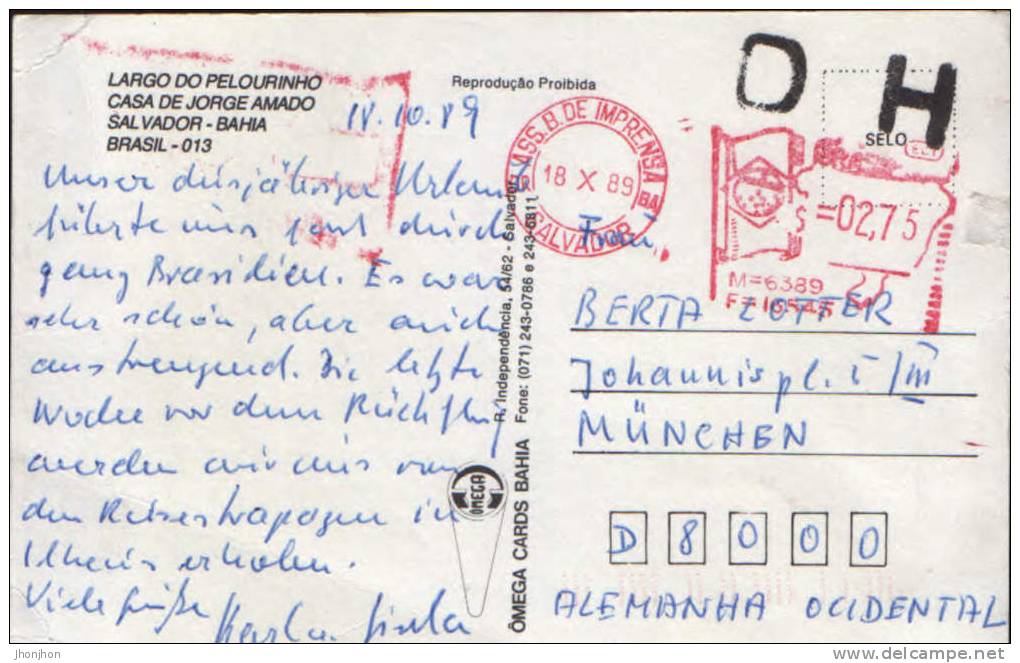 LARGO DO PELOURINHO
CASA DE JORGE AMADO
SALVADOR - BAHIA
BRASIL - 013
18.10.89
Unser diesjähriger Urlaub
führte uns fast durch
ganz Brasilien. Es war
sehr schön, aber auch
anstrengend. Die letzte
Woche vor dem Rückflug
werden wir uns von
den Reisestrapazen in
Ilheus erholen.
Viele Grüße
Reprodução Proibida
ASS. B. DE IMPRENSA
18 X 89
BA
SALVADOR
O H
SELO
ECT
$ =02,75
M=6389
F=
R. Independência, 54/62 - Salvador
Fone: (071) 243-0786 e 243-6811
ÔMEGA CARDS BAHIA
ÔMEGA
Frau
BERTA ZOTTER
Johannispl. I/III
MÜNCHEN
D 8 0 0 0
ALEMANHA OCIDENTAL
jhonjhon
delcampe.net